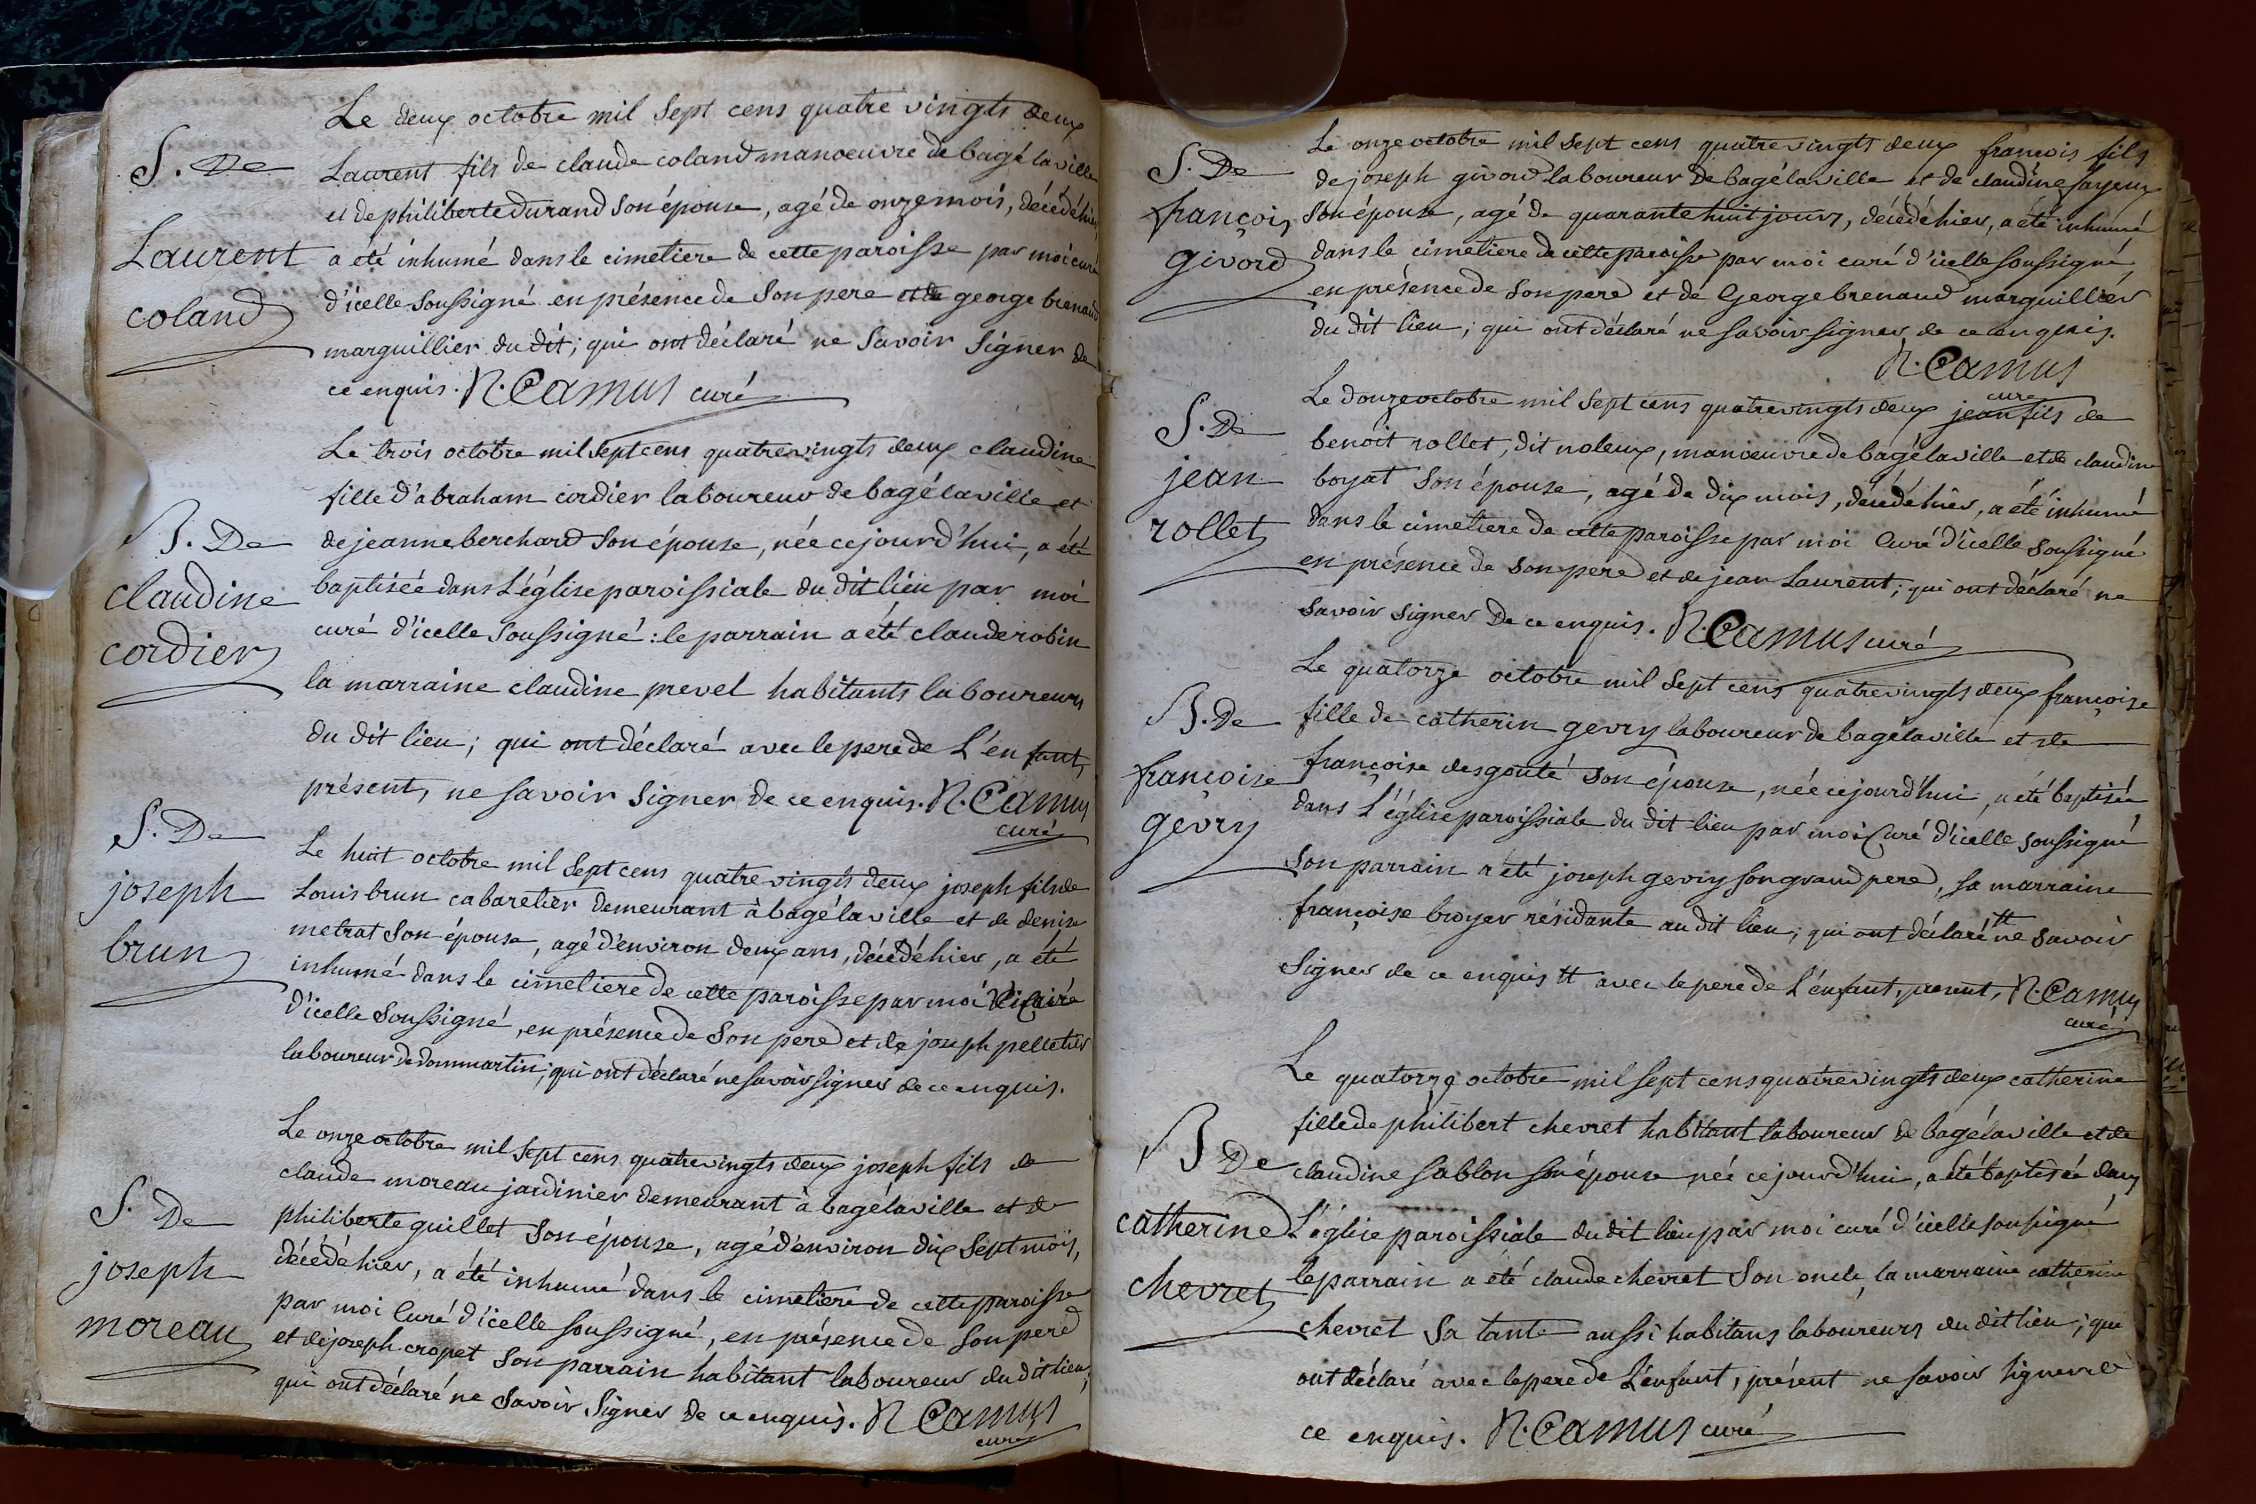 S. De
Laurent
coland
Le deux octobre mil Sept cens quatre vingts deux
Laurent fils de claude coland manoeuvre de bagé la ville
et de philiberte durand Son épouse, agé de onze mois, décédé hier,
a été inhumé dans le cimetiere de cette paroisse par moi curé
d'icelle soussigné en présence de Son pere et de george brenaud
marguillier du dit; qui ont déclaré ne Savoir Signer de
ce enquis. N. Camus curé
B. De
claudine
cordier
Le trois octobre mil Sept cens quatre vingts deux claudine
fille d'abraham cordier laboureur de bagé la ville et
de jeanne berchard Son épouse, née ce jourd'hui, a été
baptisée dans L'église paroissiale du dit lieu par moi
curé d'icelle Soussigné : le parrain a été claude robin
la marraine claudine prevel habitants laboureurs
du dit lieu; qui ont déclaré avec le pere de L'enfant,
présent, ne savoir Signer de ce enquis. N. Camus
curé
S. De
joseph
brun
Le huit octobre mil Sept cens quatre vingts deux joseph fils de
Louis brun cabaretier demeurant à bagé la ville et de denise
metrat Son épouse, agé d'environ deux ans, décédé hier, a été
inhumé dans le cimetiere de cette paroisse par moi
d'icelle Soussigné, en présence de Son pere et de joseph pelletier
laboureur de dommartin; qui ont déclaré ne Savoir signer de ce enquis.
S. De
joseph
moreau
Le onze octobre mil Sept cens quatre vingts deux joseph fils de
claude moreau jardinier demeurant à bagé la ville et de
philiberte guillet Son épouse, agé d'environ dix Sept mois,
décédé hier, a été inhumé dans le cimetiere de cette paroisse
par moi Curé d'icelle Soussigné, en présence de Son pere
et de joseph cropet Son parrain habitant laboureur du dit lieu;
qui ont déclaré ne Savoir Signer de ce enquis. N Camus
curé
S. De
françois
givord
Le onze octobre mil Sept cens quatre vingts deux françois fils
de joseph givord laboureur de bagé la ville et de claudine
Son épouse, agé de quarante huit jours, décédé hier, a été inhumé
dans le cimetiere de cette paroisse par moi curé d'icelle Soussigné
en présence de Son pere et de George brenaud marguillier
du dit lieu; qui ont déclaré ne Savoir signer de ce enquis.
N. Camus
curé
S. De
jean
rollet
Le douze octobre mil Sept cens quatre vingts deux jean fils de
benoit rollet, dit noleux, manoeuvre de bagé la ville et de claudine
boyat Son épouse, agé de dix mois, décédé hier, a été inhumé
dans le cimetiere de cette paroisse par moi Curé d'icelle Soussigné
en présence de Son pere et de jean Laurent; qui ont déclaré ne
Savoir signer De ce enquis. N. Camus curé
B. De
françoise
gevry
Le quatorze octobre mil Sept cens quatre vingts deux françoise
fille de catherin gevry laboureur de bagé la ville et de
françoise desgouté Son épouse, née ce jourd'hui, a été baptisée
dans L'église paroissiale du dit lieu par moi Curé d'icelle Soussigné
Son parrain a été joseph gevry son grand pere, sa marraine
françoise broyer résidante au dit lieu; qui ont déclaré tt ne Savoir
Signer de ce enquis tt avec le pere de L'enfant, présent, N. Camus
curé
B De
catherine
chevret
Le quatorze octobre mil Sept cens quatre vingts deux catherine
fille de philibert chevret habitant laboureur de bagé la ville et de
claudine Sablon Son épouse née ce jourd'hui, a été baptisée dans
L'église paroissiale du dit lieu par moi curé d'icelle soussigné
le parrain a été claude chevret Son oncle, la marraine catherine
chevret Sa tante aussi habitans laboureurs du dit lieu; qui
ont déclaré avec le pere de L'enfant, présent ne Savoir signer de
ce enquis. N. Camus curé